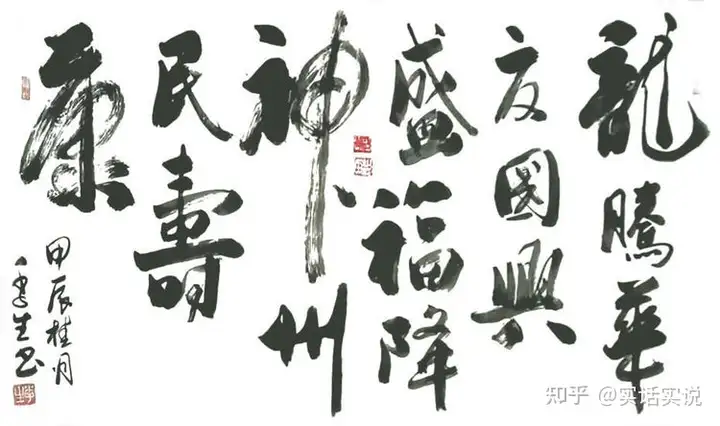 龍騰華
夏國興
盛福降
神州
民壽
康
甲辰桂月
生书
知乎 @实话实说